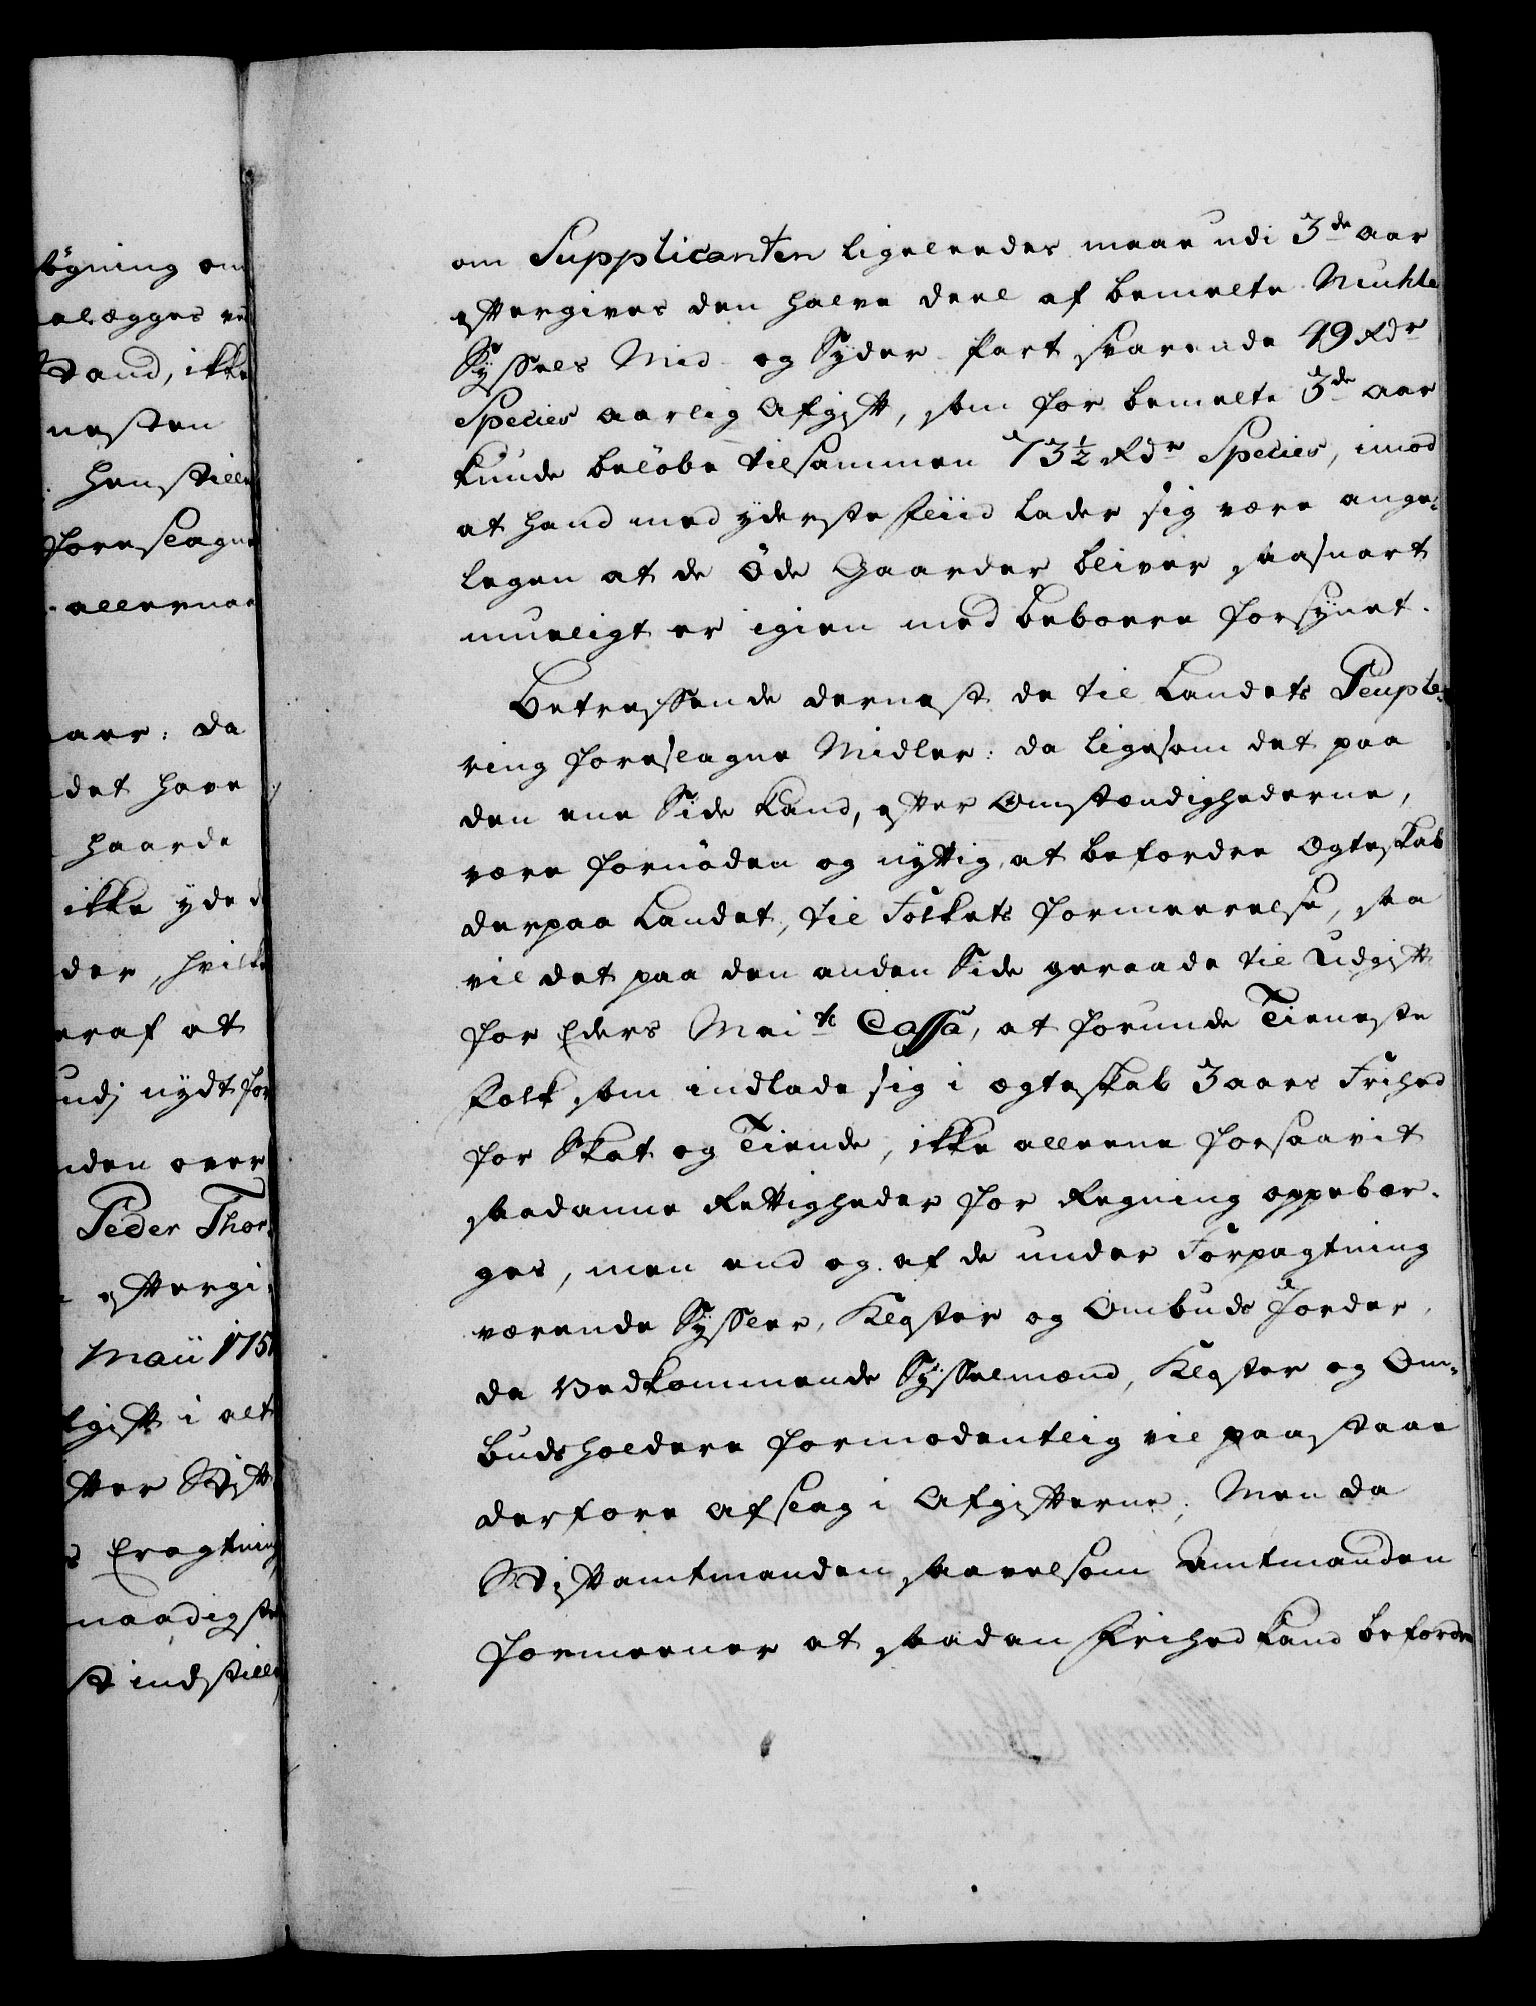 øgning om
elægges ved
Vand, ikke
nesten
henstille
foreslagne
allernaa
aar: da
det have
haarde
ikke yde d
der, hvilke
eraf at
udj nydt for
nden over
Peder Thor
eftergi:
Maii 175
fgift i alt
fter Stift
s Eragtning
naadigst
st indstille
om Supplicanten ligeleedes maae udi 3de aar
eftergives den halve deel af bemelte Muhle
Syssels Mid- og Syder Part svarende 49 Rdr
Species aarlig Afgift, som for bemelte 3de Aar
kunde beløbe tilsammen 73½ Rdr Species, imod
at hand med yderste Fliid lader sig være ange:
legen at de Öde Gaarder bliver saasnart
mueligt er igien med beboere forsynet.
Betreffende dernest de til Landets Peuple:
ring foreslagne Midler: da ligesom det paa
den ene Side kand, efter Omstændighederne,
være fornöden og nyttig, at befordre Ægteskab
derpaa Landet, til Folkets formeerelse, saa
vil det paa den anden Side geraade til Udgift
for Eders Maits Cassa, at forunde Tieneste
Folk som indlade sig i ægteskab 3 aars Frihed
for Skat og Tiende, ikke alleene forsaavit
saadanne Rettigheder for Regning oppebær-
ges, men end og af de under Forpagtning
værende Sysler, Kloster og Ombuds Jorder,
da Vedkommende Sysselmænd, Kloster og Om-
budsholdere formodentlig vil paastaae
derfore Afslag i Afgifterne; Men da
Stiftamtmanden saavelsom Amtmanden
formeener at saadan Friehed kand befordre